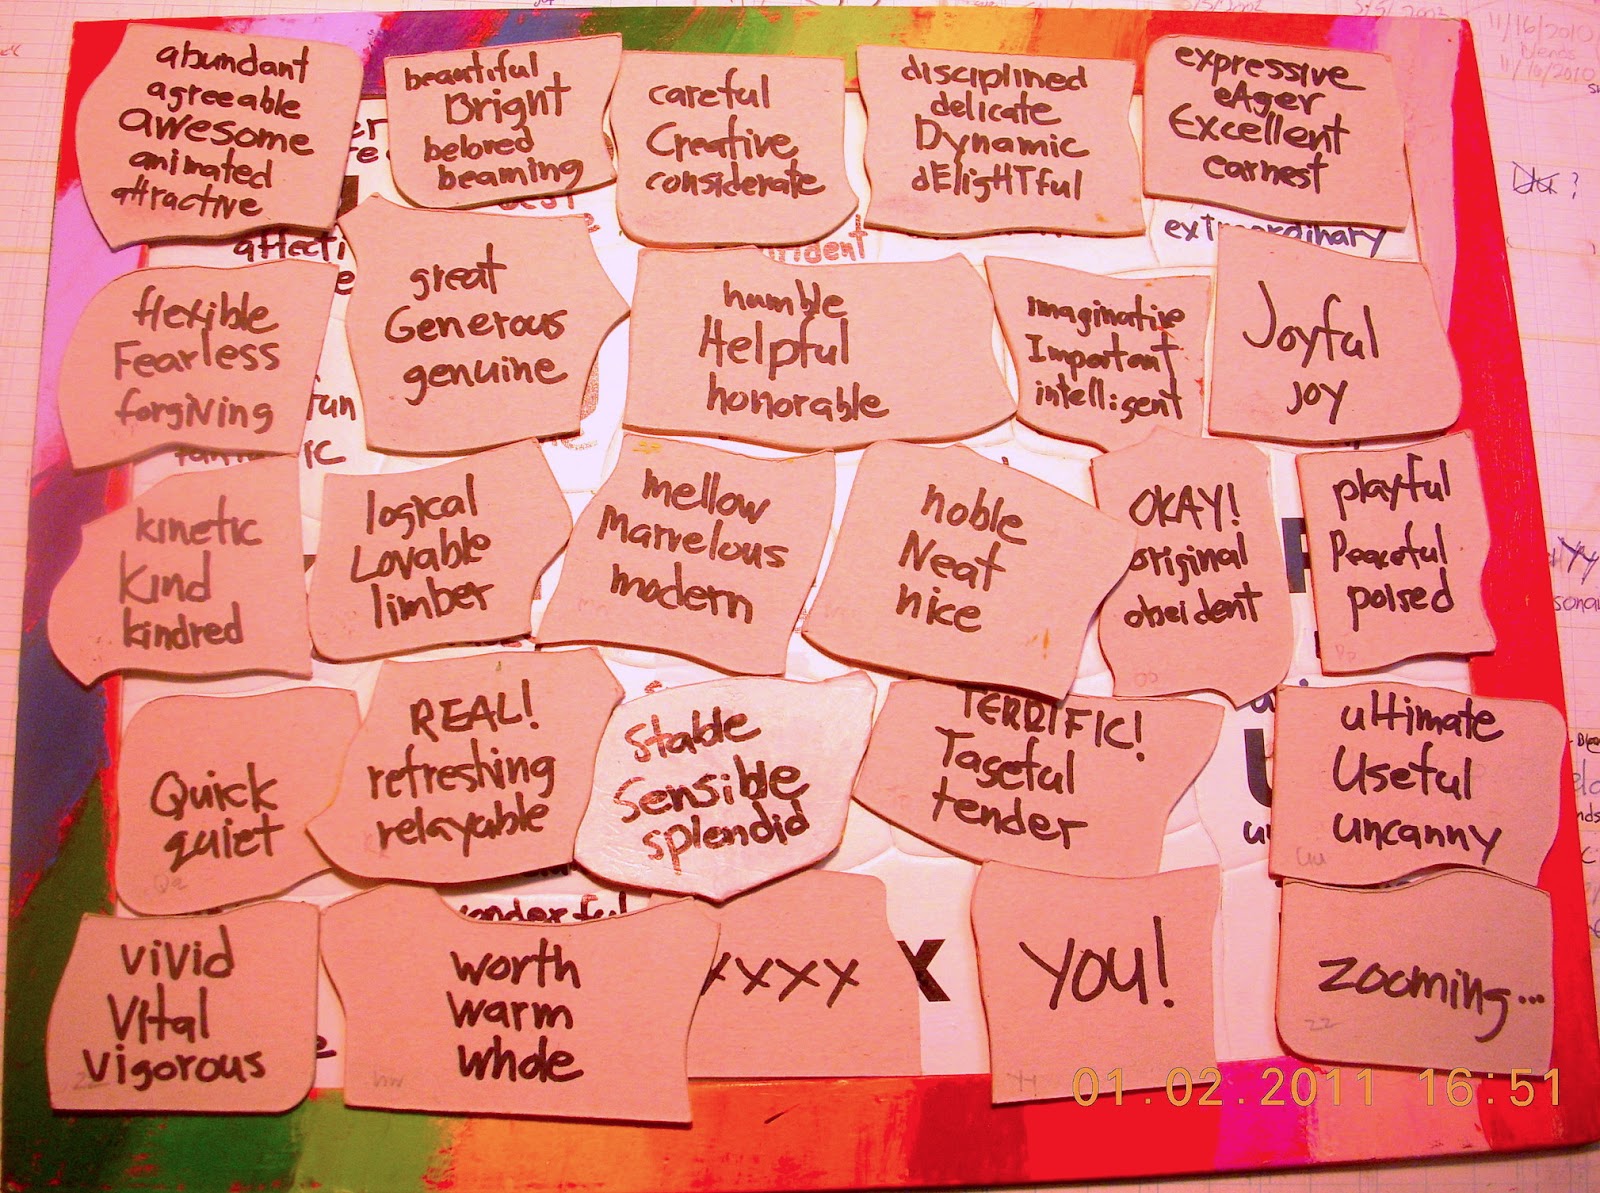 abundant
agreeable
awesome
animated
attractive
beautiful
Bright
beloved
beaming
careful
Creative
considerate
disciplined
delicate
Dynamic
dEligHTful
expressive
eAger
Excellent
earnest
11/16/2010
blends
11/10/2010
extraordinary
flexible
Fearless
forgiving
great
Generous
genuine
humble
Helpful
honorable
imaginative
Important
intelligent
Joyful
joy
kinetic
Kind
kindred
logical
Lovable
limber
mellow
Marvelous
modern
noble
Neat
nice
OKAY!
original
obeident
playful
Peaceful
poised
Quick
quiet
REAL!
refreshing
relayable
Stable
Sensible
splendid
TERRIFIC!
Taseful
tender
ultimate
Useful
uncanny
wonderful
vivid
Vital
vigorous
worth
warm
whole
xxxx X
YOU!
zooming...
01.02.2011 16:51